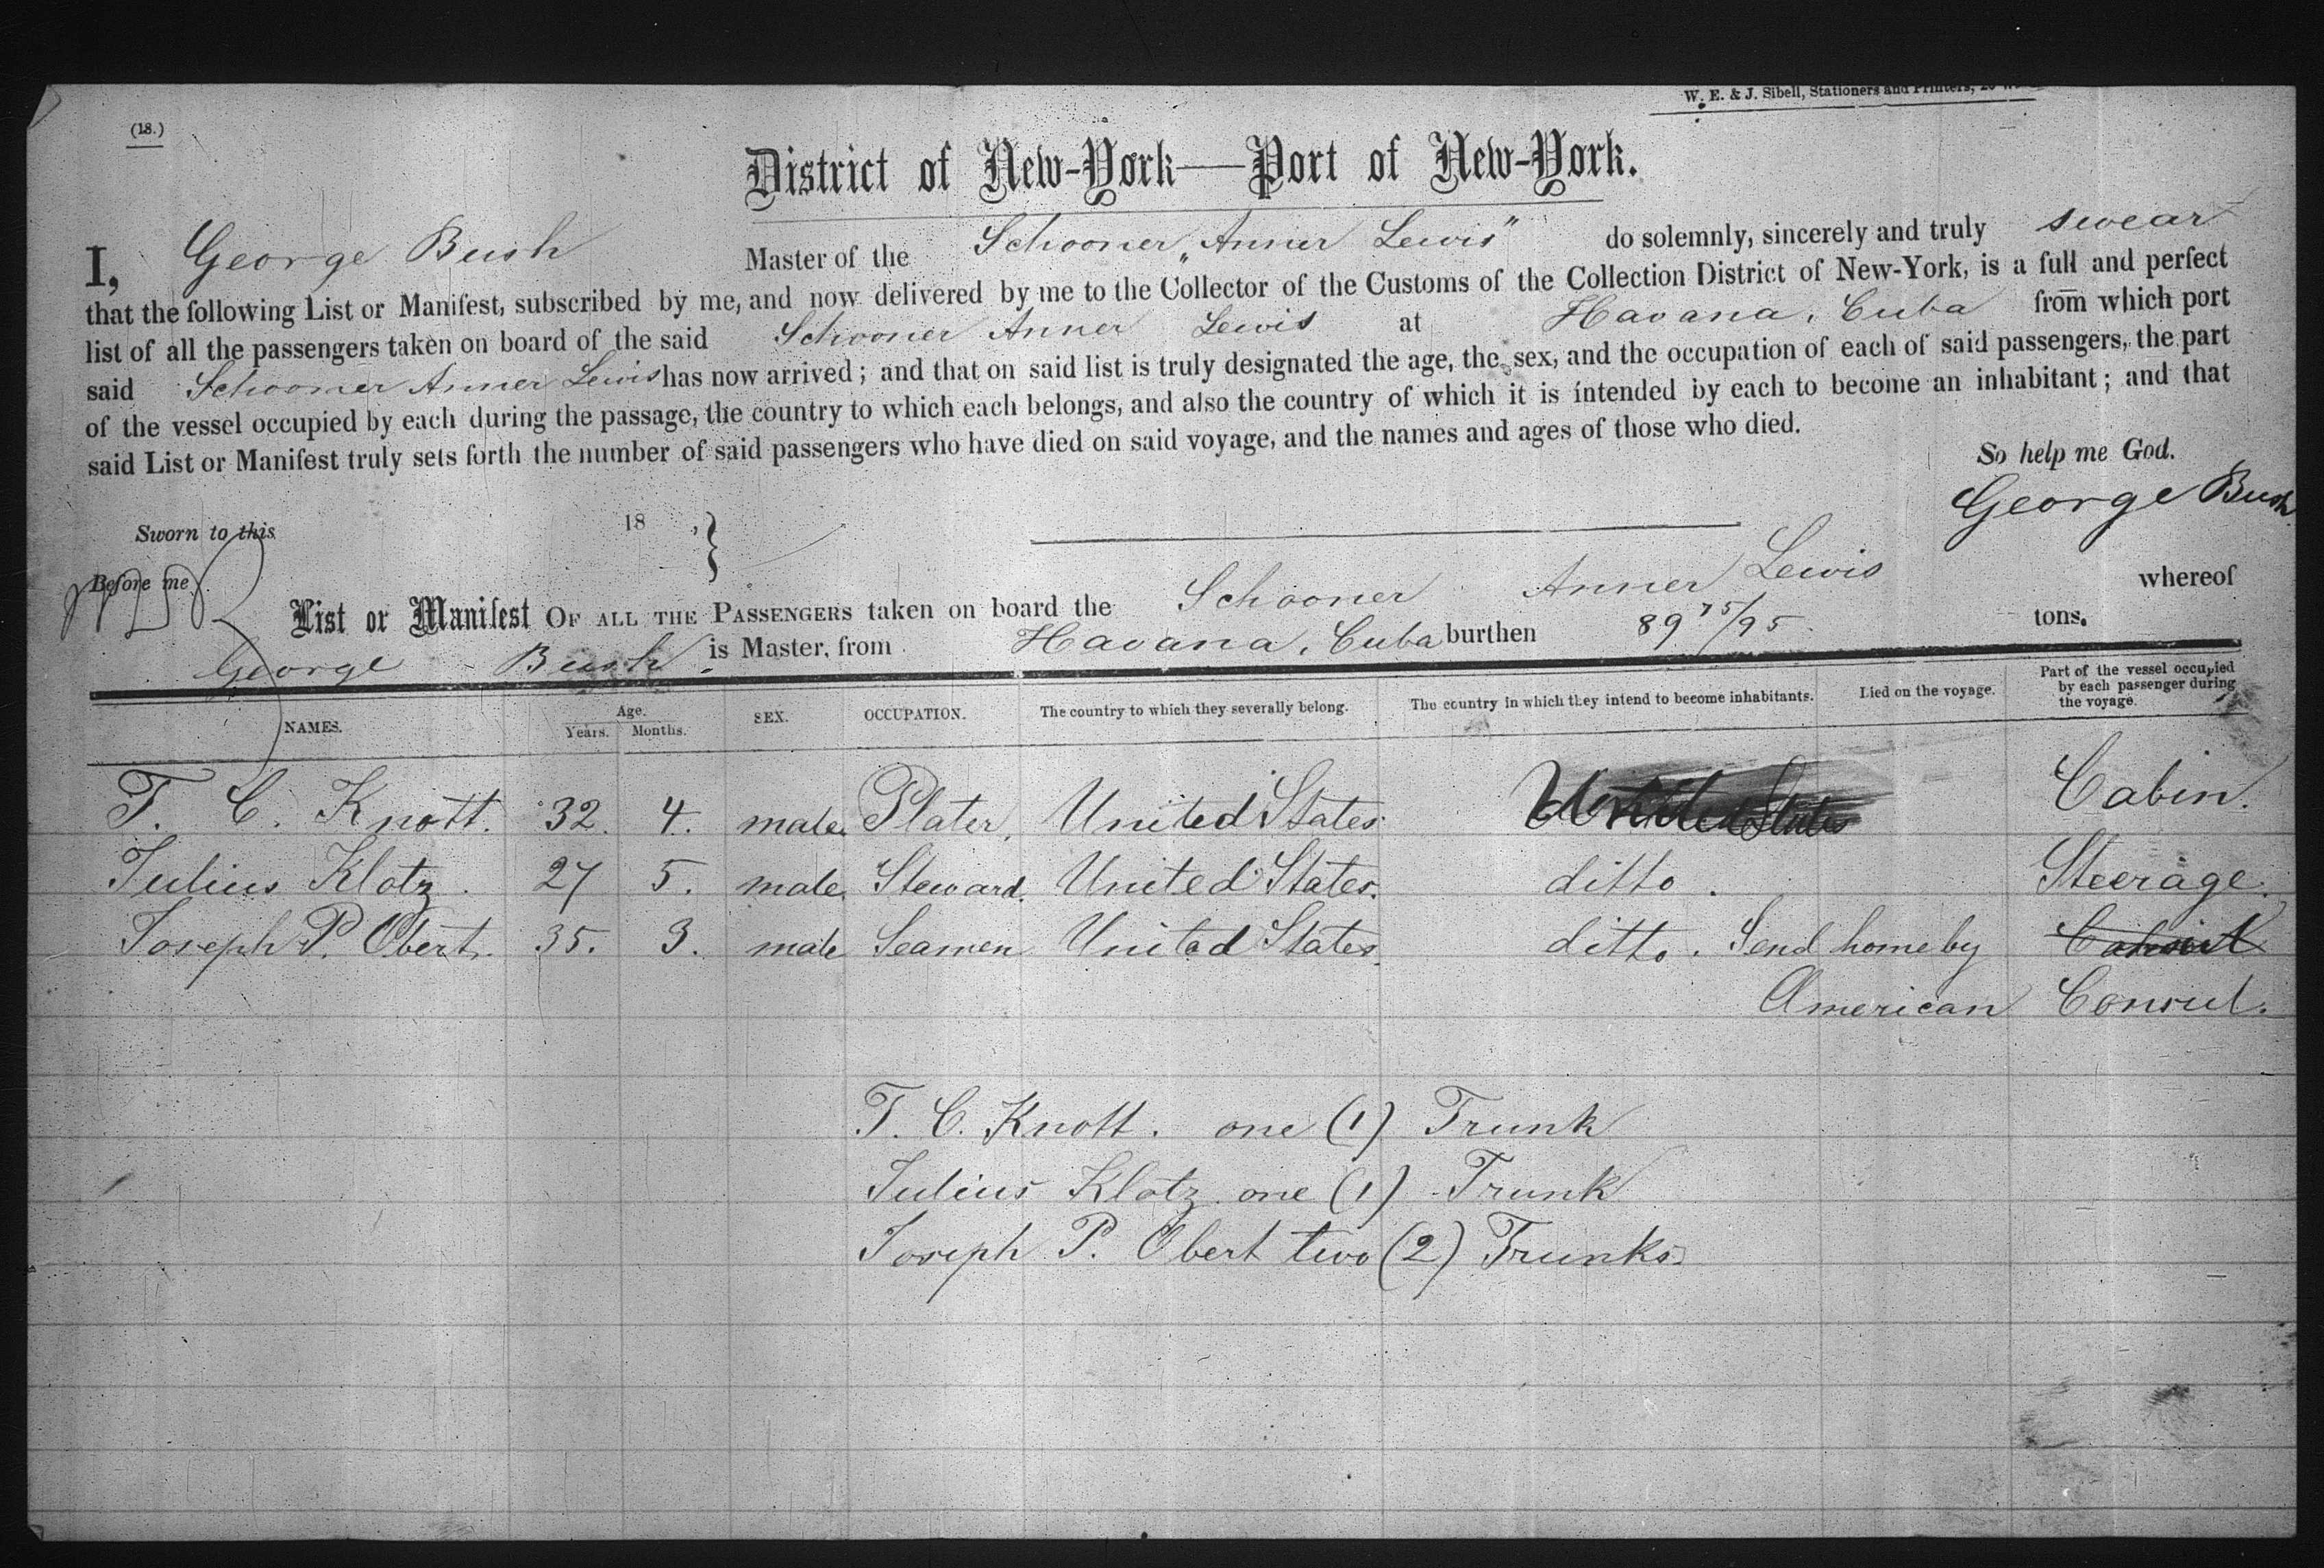 W. E. & J. Sibell, Stationers and Printers,
(18.)
District of New-York—Port of New-York.
I, George Bush Master of the Schooner „Anner Lewis" do solemnly, sincerely and truly swear
that the following List or Manifest, subscribed by me, and now delivered by me to the Collector of the Customs of the Collection District of New-York, is a full and perfect
list of all the passengers taken on board of the said Schooner Anner Lewis at Havana, Cuba from which port
said Schooner Anner Lewis has now arrived; and that on said list is truly designated the age, the sex, and the occupation of each of said passengers, the part
of the vessel occupied by each during the passage, the country to which each belongs, and also the country of which it is intended by each to become an inhabitant; and that
said List or Manifest truly sets forth the number of said passengers who have died on said voyage, and the names and ages of those who died.
So help me God.
George Bush
Sworn to this 18 ,
Before me
List or Manifest OF ALL THE PASSENGERS taken on board the Schooner Anner Lewis whereof
George Bush is Master, from Havana, Cuba burthen 89 75/95 tons.
NAMES. Age. Years. Months. SEX. OCCUPATION. The country to which they severally belong. The country in which they intend to become inhabitants. Died on the voyage. Part of the vessel occupied by each passenger during the voyage.
T. C. Knott. 32. 4. male. Plater. United States. United States Cabin.
Julius Klotz. 27 5. male. Steward. United States. ditto. Steerage.
Joseph P. Obert. 35. 3. male Seamen United States. ditto. Send home by
American Consul.
T. C. Knott. one (1) Trunk
Julius Klotz one (1) Trunk
Joseph P. Obert two (2) Trunks.